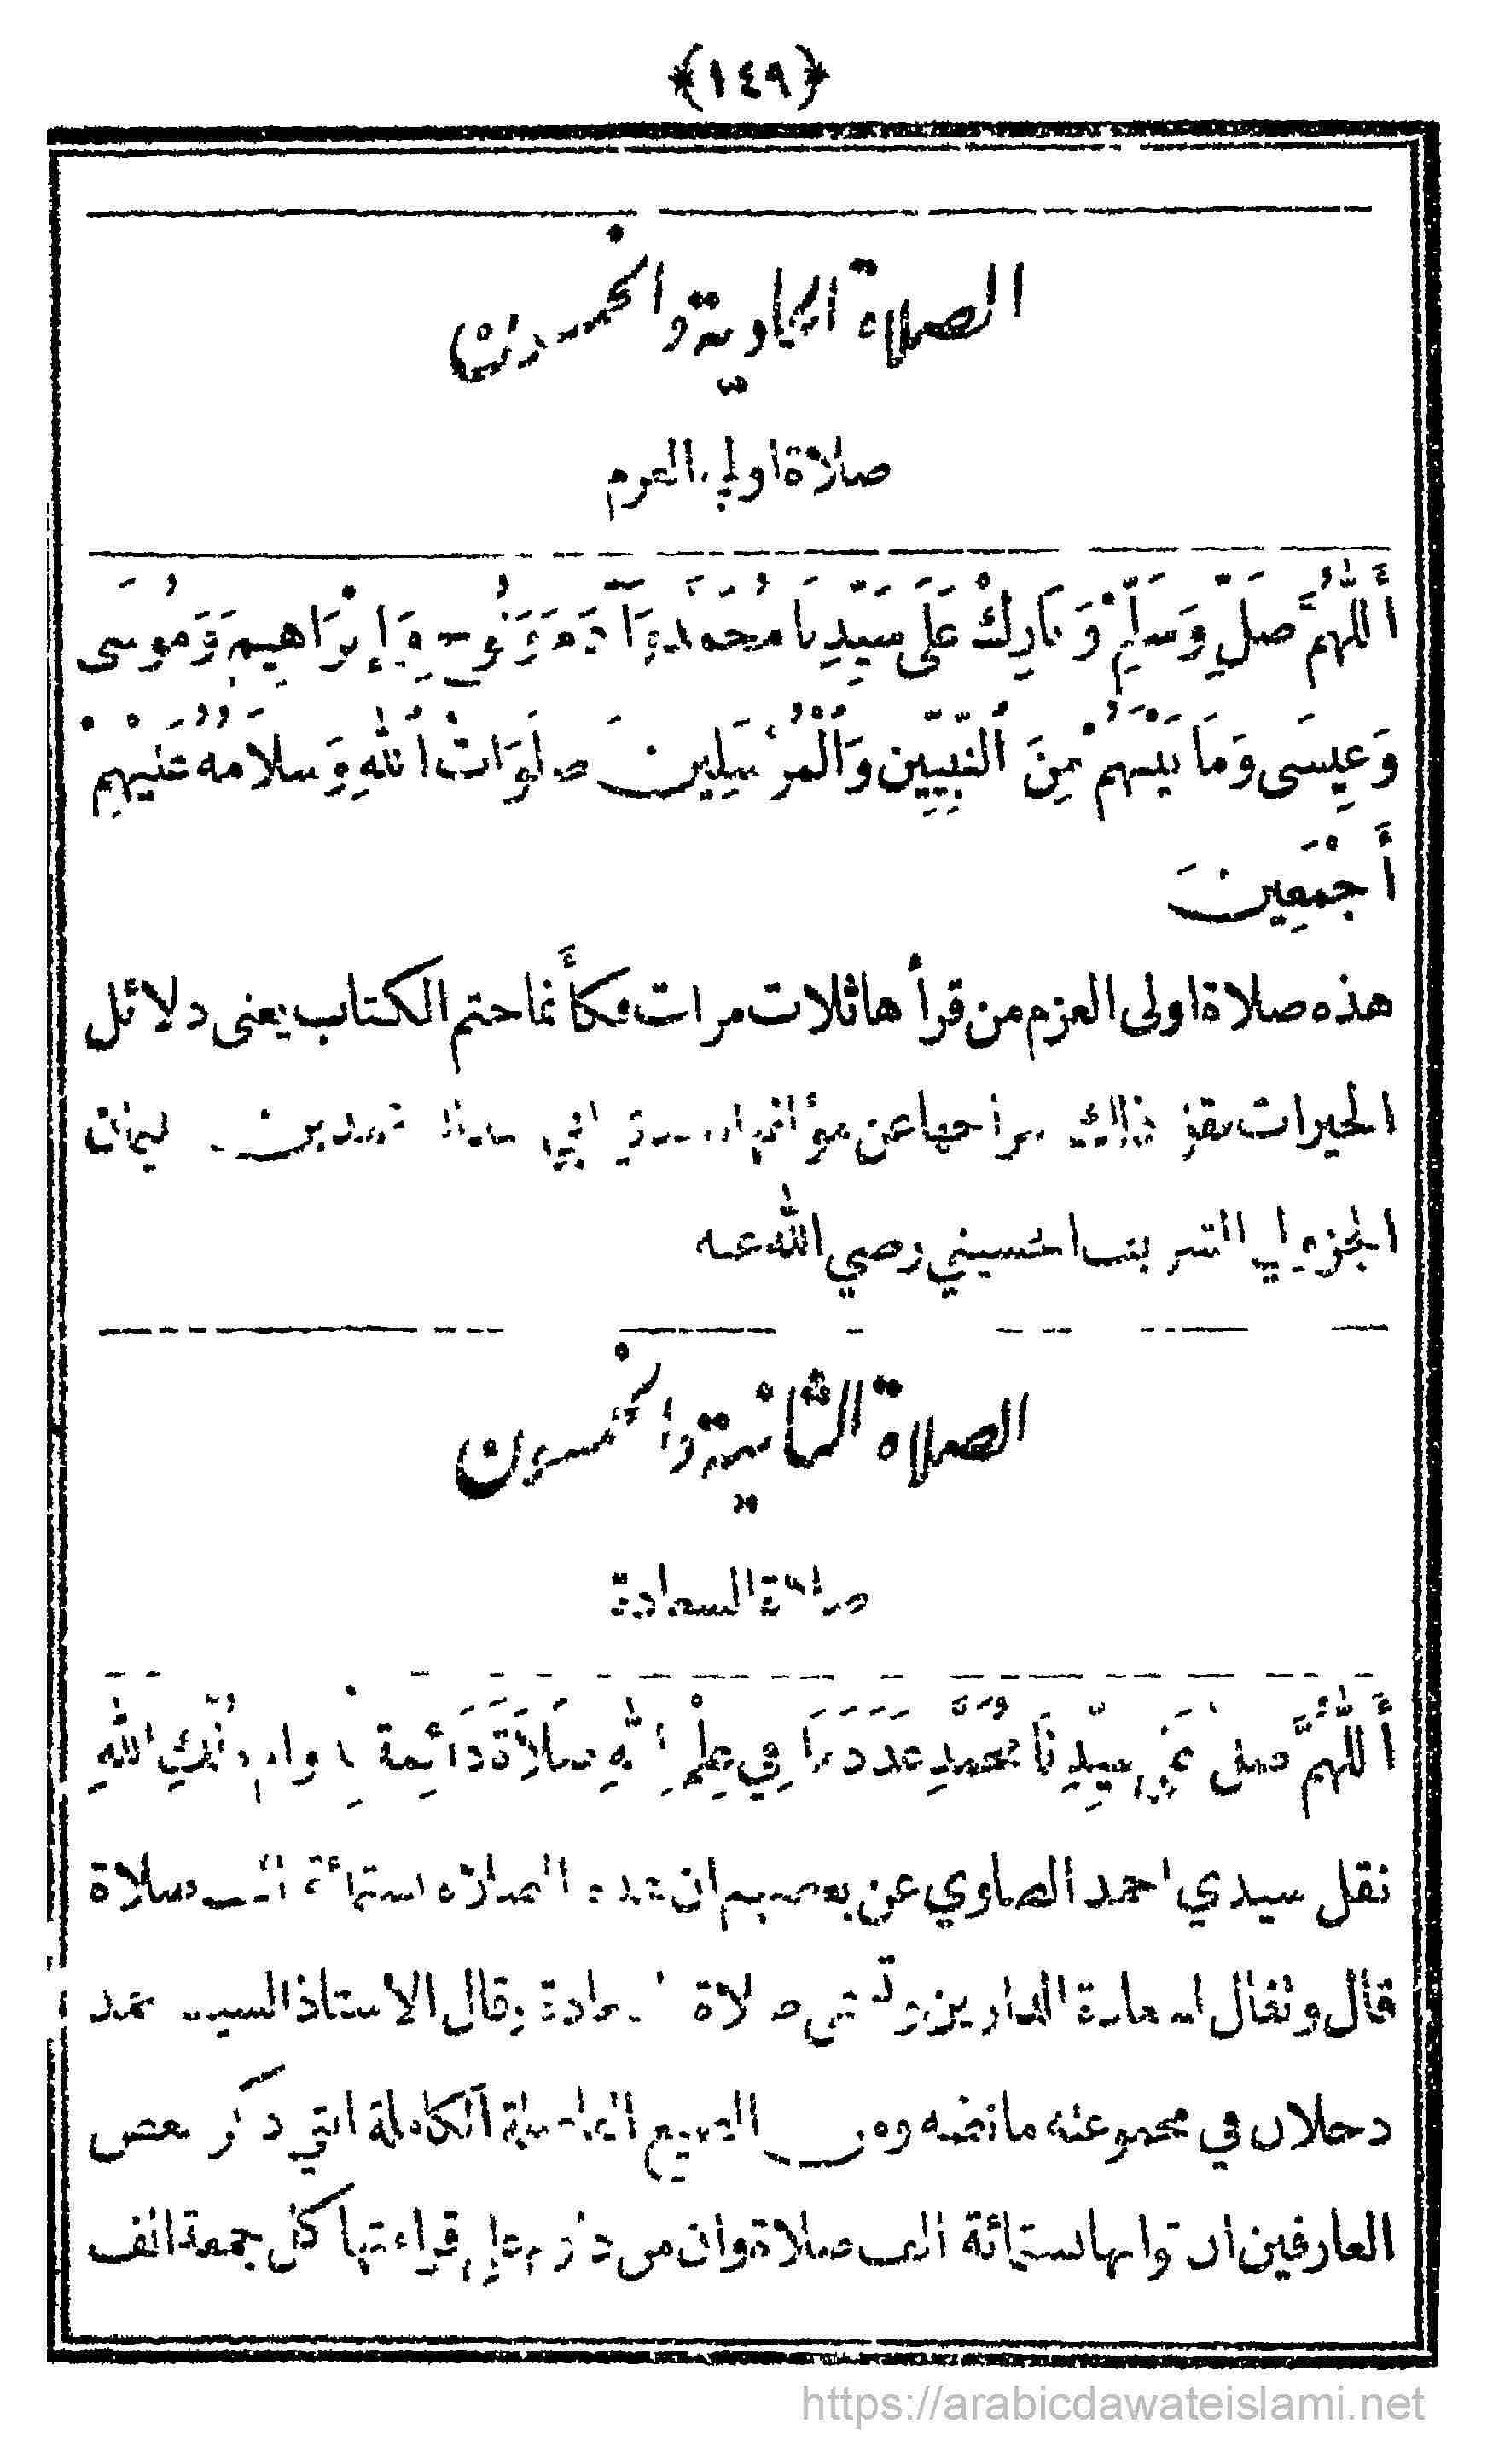 ﴿١٤٩﴾
الصلاة الحادية والخمسون
صلاة اولي العزم
أَللّٰهُمَّ صَلِّ وَسَلِّمْ وَبَارِكْ عَلَى سَيِّدِنَا مُحَمَّدٍ وَآدَمَ وَنُوحٍ وَإِبْرَاهِيمَ وَمُوسَى
وَعِيسَى وَمَا بَيْنَهُمْ مِنَ ٱلنَّبِيِّينَ وَٱلْمُرْسَلِينَ صَلَوَاتُ ٱللهِ وَسَلَامُهُ عَلَيْهِمْ
أَجْمَعِينَ
هذه صلاة اولى العزم من قرأها ثلاث مرات فكأَنما ختم الكتاب يعنى دلائل
الخيرات نقل ذلك شراحها عن مؤلفها سيدي ابي عبد الله محمد بن سليمان
الجزولي الشريف الحسيني رضي الله عنه
الصلاة الثانية والخمسون
صلاة السعادة
أَللّٰهُمَّ صَلِّ عَلَى سَيِّدِنَا مُحَمَّدٍ عَدَدَ مَا فِي عِلْمِ ٱللهِ صَلَاةً دَائِمَةً بِدَوَامِ مُلْكِ ٱللهِ
نقل سيدي احمد الصاوي عن بعضهم ان هذه الصلاة بستمائة الف صلاة
قال وتقال لسعادة الدارين وتسمى صلاة السعادة وقال الاستاذ السيد احمد
دحلان في مجموعته ما نصه ومن الصيغ الفاضلة الكاملة التي ذكر بعض
العارفين ان ثوابها بستمائة الف صلاة وان من داوم على قراءتها كل جمعة الف
https://arabicdawateislami.net